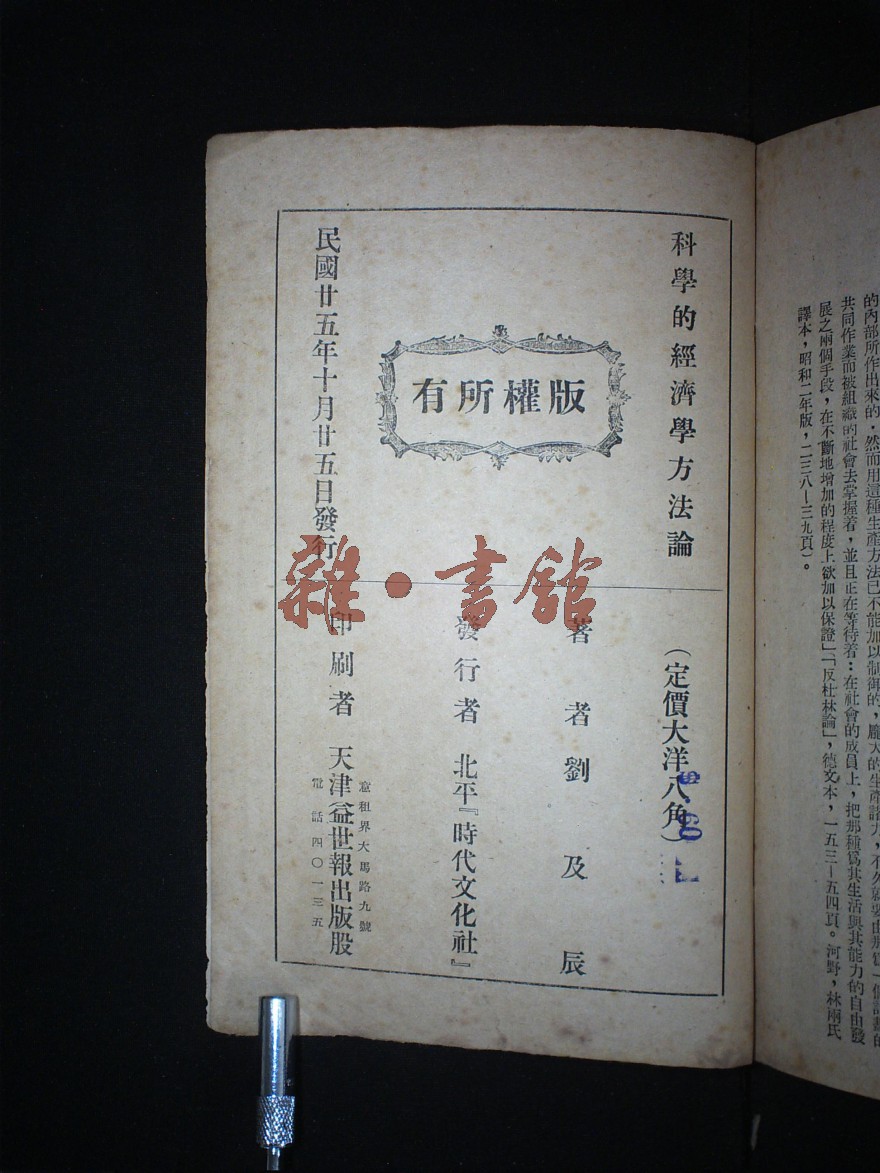 的內部所作出來的，然而用這種生產方法已不能加以制御的，龐大的生產諸力，不久就要由那爲一個計畫的
共同作業而被組織的社會去掌握着，並且正在等待着：在社會的成員上，把那種爲其生活與其能力的自由發
展之兩個手段，在不斷地增加的程度上欲加以保證」「反杜林論」，德文本，一五三—五四頁。河野，林兩氏
譯本，昭和二年版，二三八—三九頁）。
科學的經濟學方法論
（定價大洋八角）
版權所有
著者劉及辰
發行者 北平『時代文化社』
民國廿五年十月廿五日發行
印刷者 天津益世報出版股
意租界大馬路九號
電話四〇一三五
雜·書館